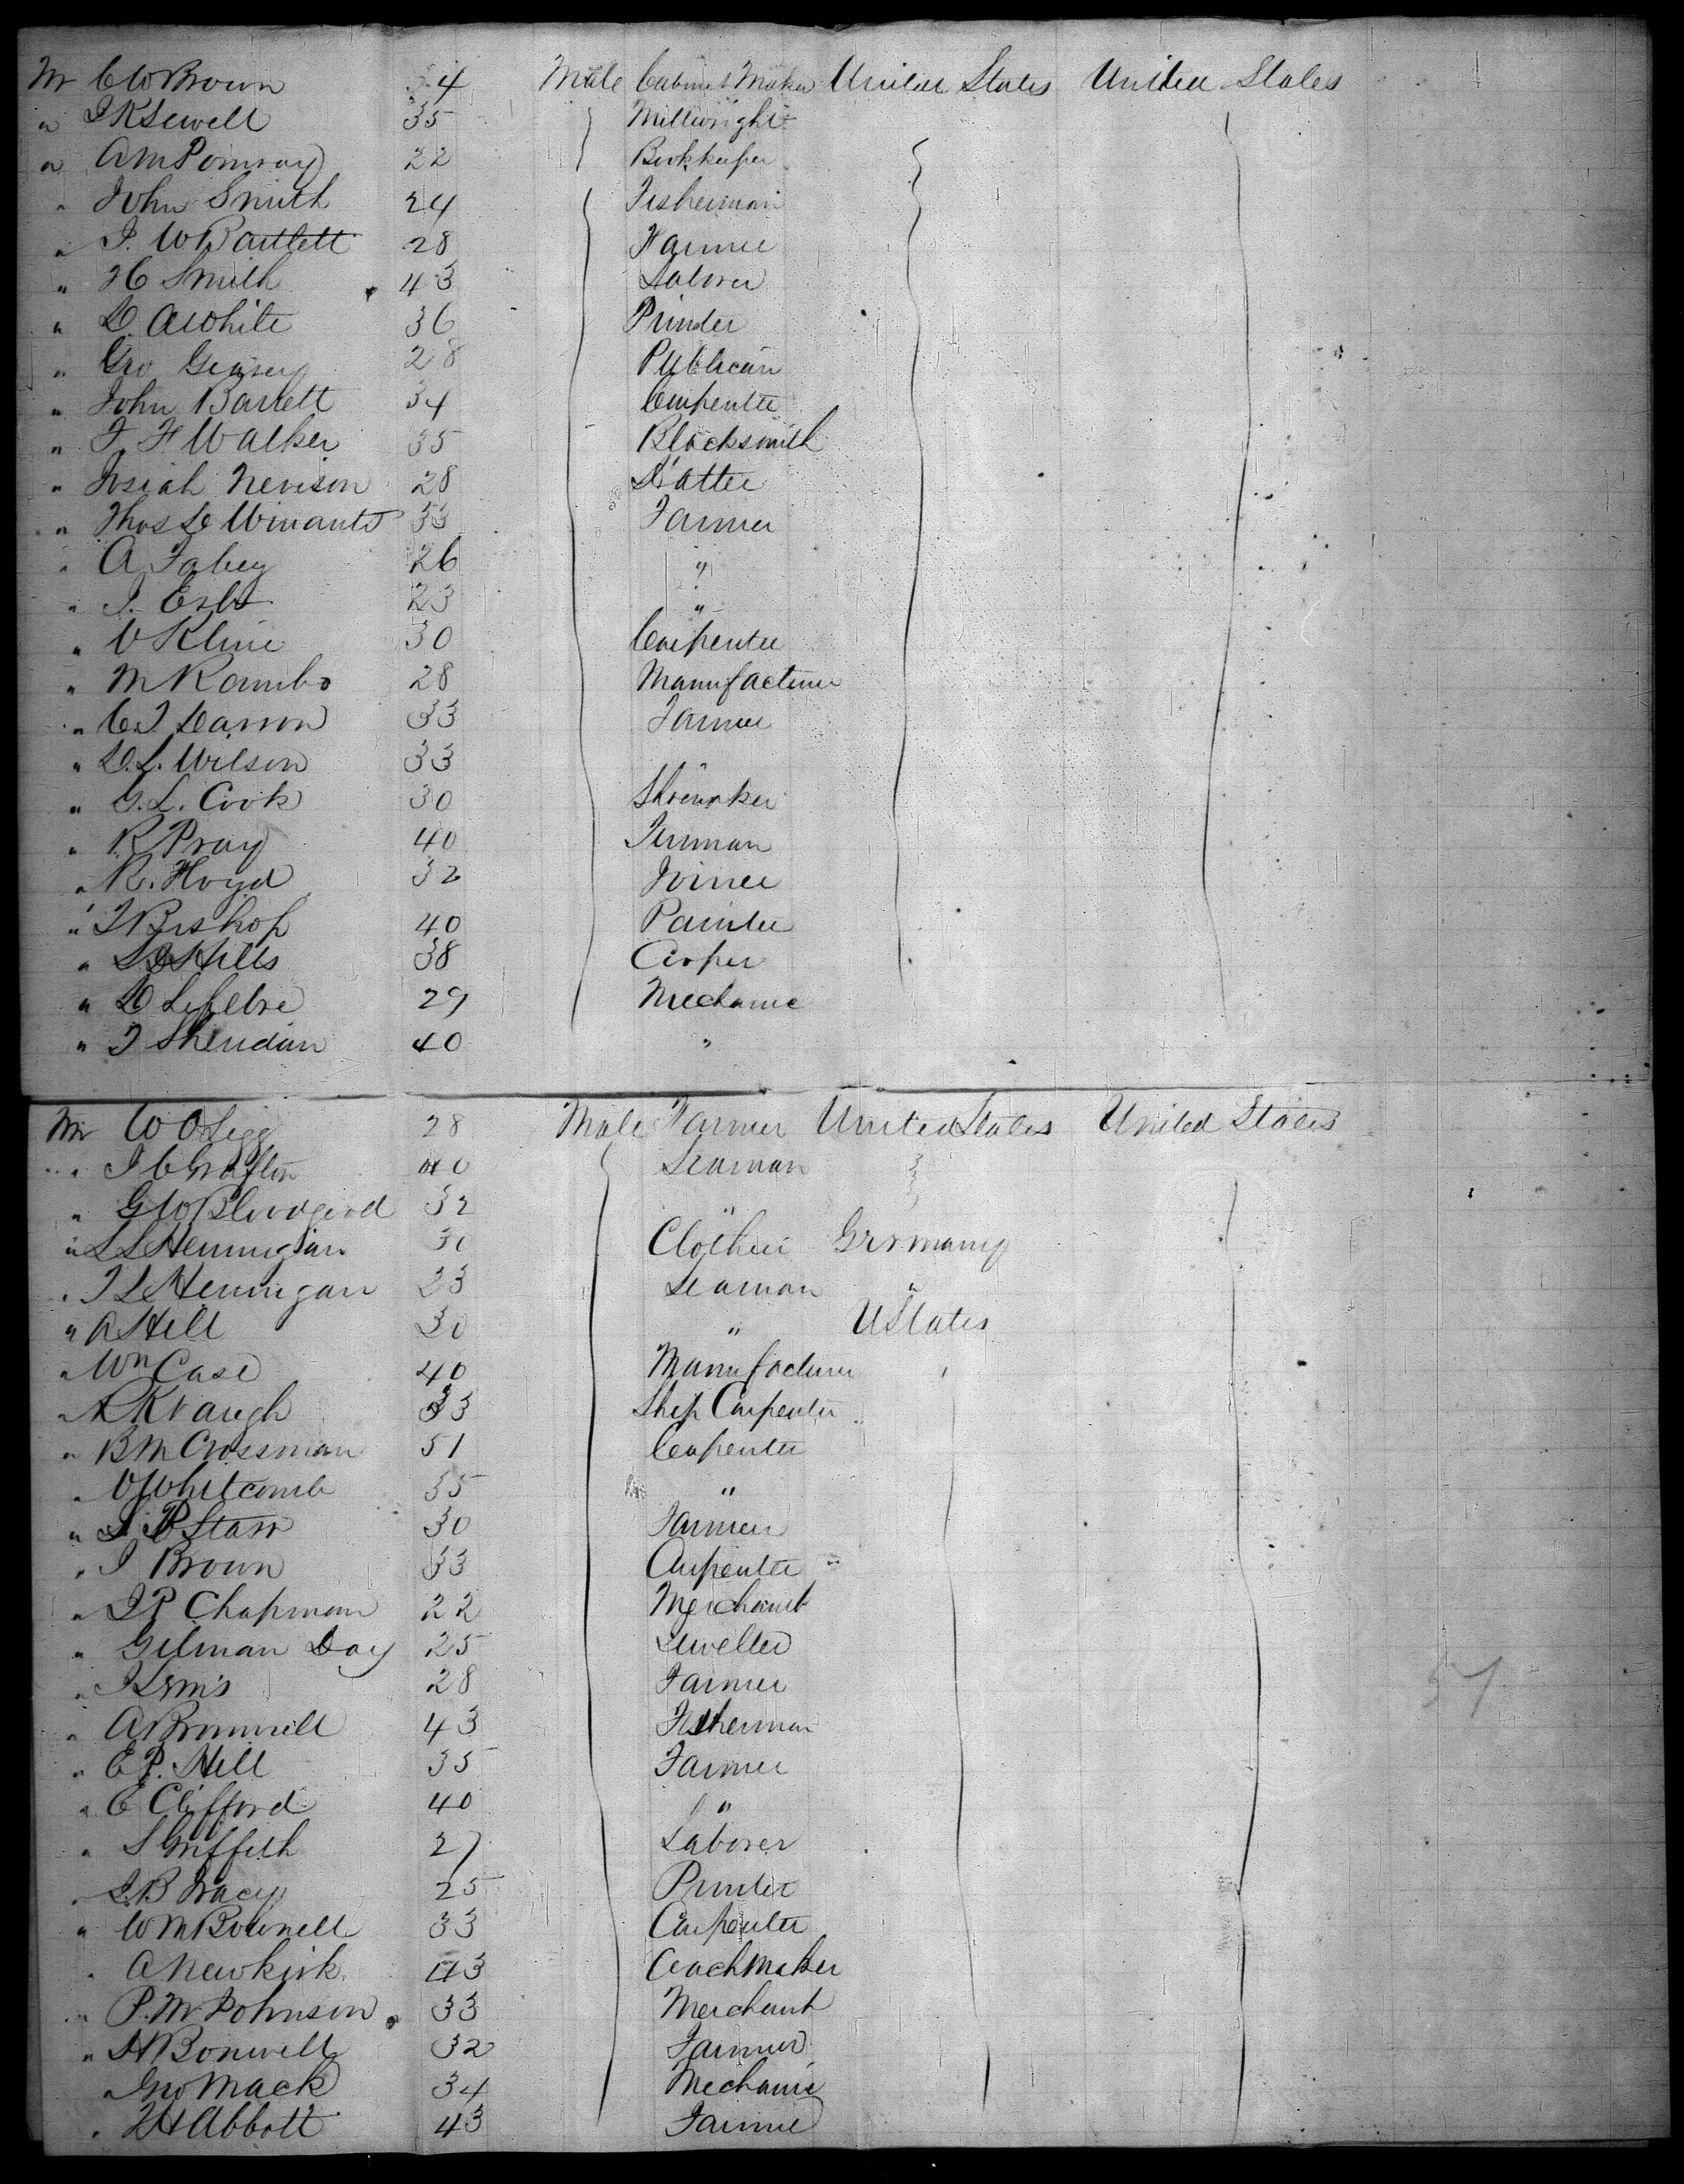 Mr C W Brown 34 Male Cabinet Maker United States United States
" J K Sewell 35 Millwright
" A M Pomroy 22 Bookkeeper
" John Smith 24 Fisherman
" J. W Bartlett 28 Farmer
" H C Smith 43 Laborer
" D. A White 36 Printer
" Geo 28 Publican
" John Bartlett 34 Carpenter
" J. F Walker 35 Blacksmith
" Josiah Nevison 28 Hatter
" Thos D Winants 33 Farmer
" A Fahey 26 "
" J. Erb 23 "
" V Kline 30 Carpenter
" M Rambo 28 Manufacturer
" C. J 33 Farmer
" D. L. Wilson 33 "
" G. L. Cook 30 Shoemaker
" R Pray 40 Tinman
" R. Floyd 32 Joiner
" J Bishop 40 Painter
" Hills 38 Cooper
" D Lefebre 29 Mechanic
" J Sheridan 40 "
Mr W O Legg 28 Male Farmer United States United States
" J C Grafton 40 Seaman
" G W Bloodgood 32 "
" L S Hennigan 30 Clothier Germany
" J L Hennigan 23 Seaman "
" A Hill 30 " U States
" Wm Case 40 Manufacturer
" A K Vaugh 33 Ship Carpenter
" B M Crossman 51 Carpenter
" V Whitcomb 35 "
" S. P Starr 30 Farmer
" J Brown 33 Carpenter
" J P Chapman 22 Merchant
" Gilman Day 25 Jeweller
" 28 Farmer
" A Brownell 43 Fisherman
" E P. Hill 35 Farmer
" C Clifford 40 "
" S Griffith 27 Laborer
" J B Tracy 25 Printer
" W M Bownell 33 Carpenter
" A Newkirk 43 Coachmaker
" P. M Johnson 33 Merchant
" H Bonwell 32 Farmer
" Geo Mack 34 Mechanic
" H Abbott 43 Farmer